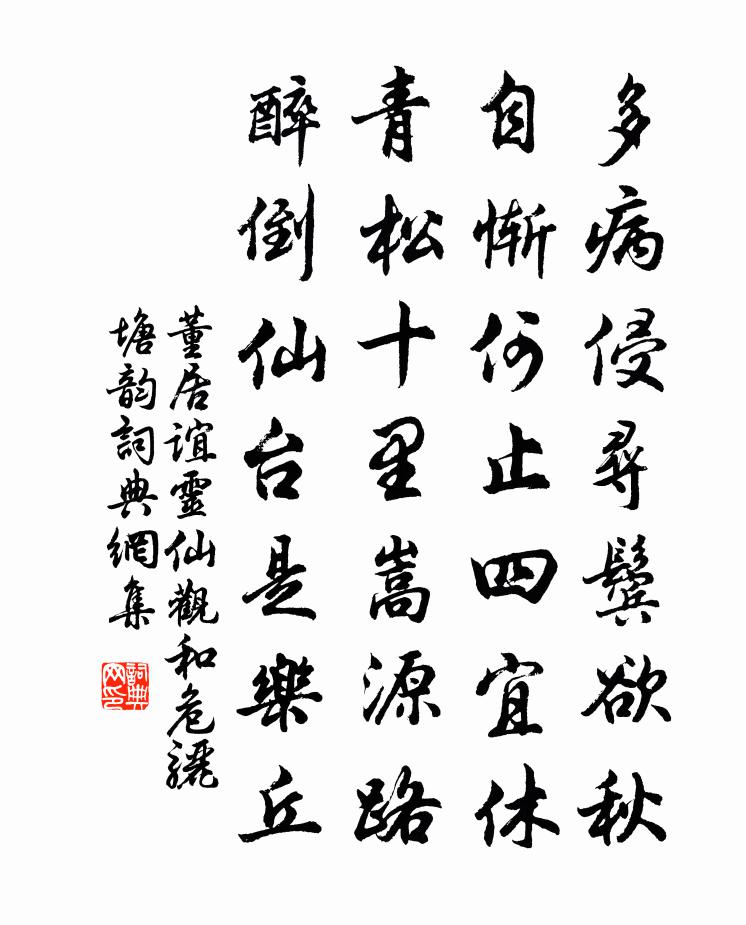 多病侵尋鬓欲秋
自慚何止四宜休
青松十里嵩源路
醉倒仙台是樂丘
董居誼靈仙觀和危驪
塘韵詞典網集
詞典
网印